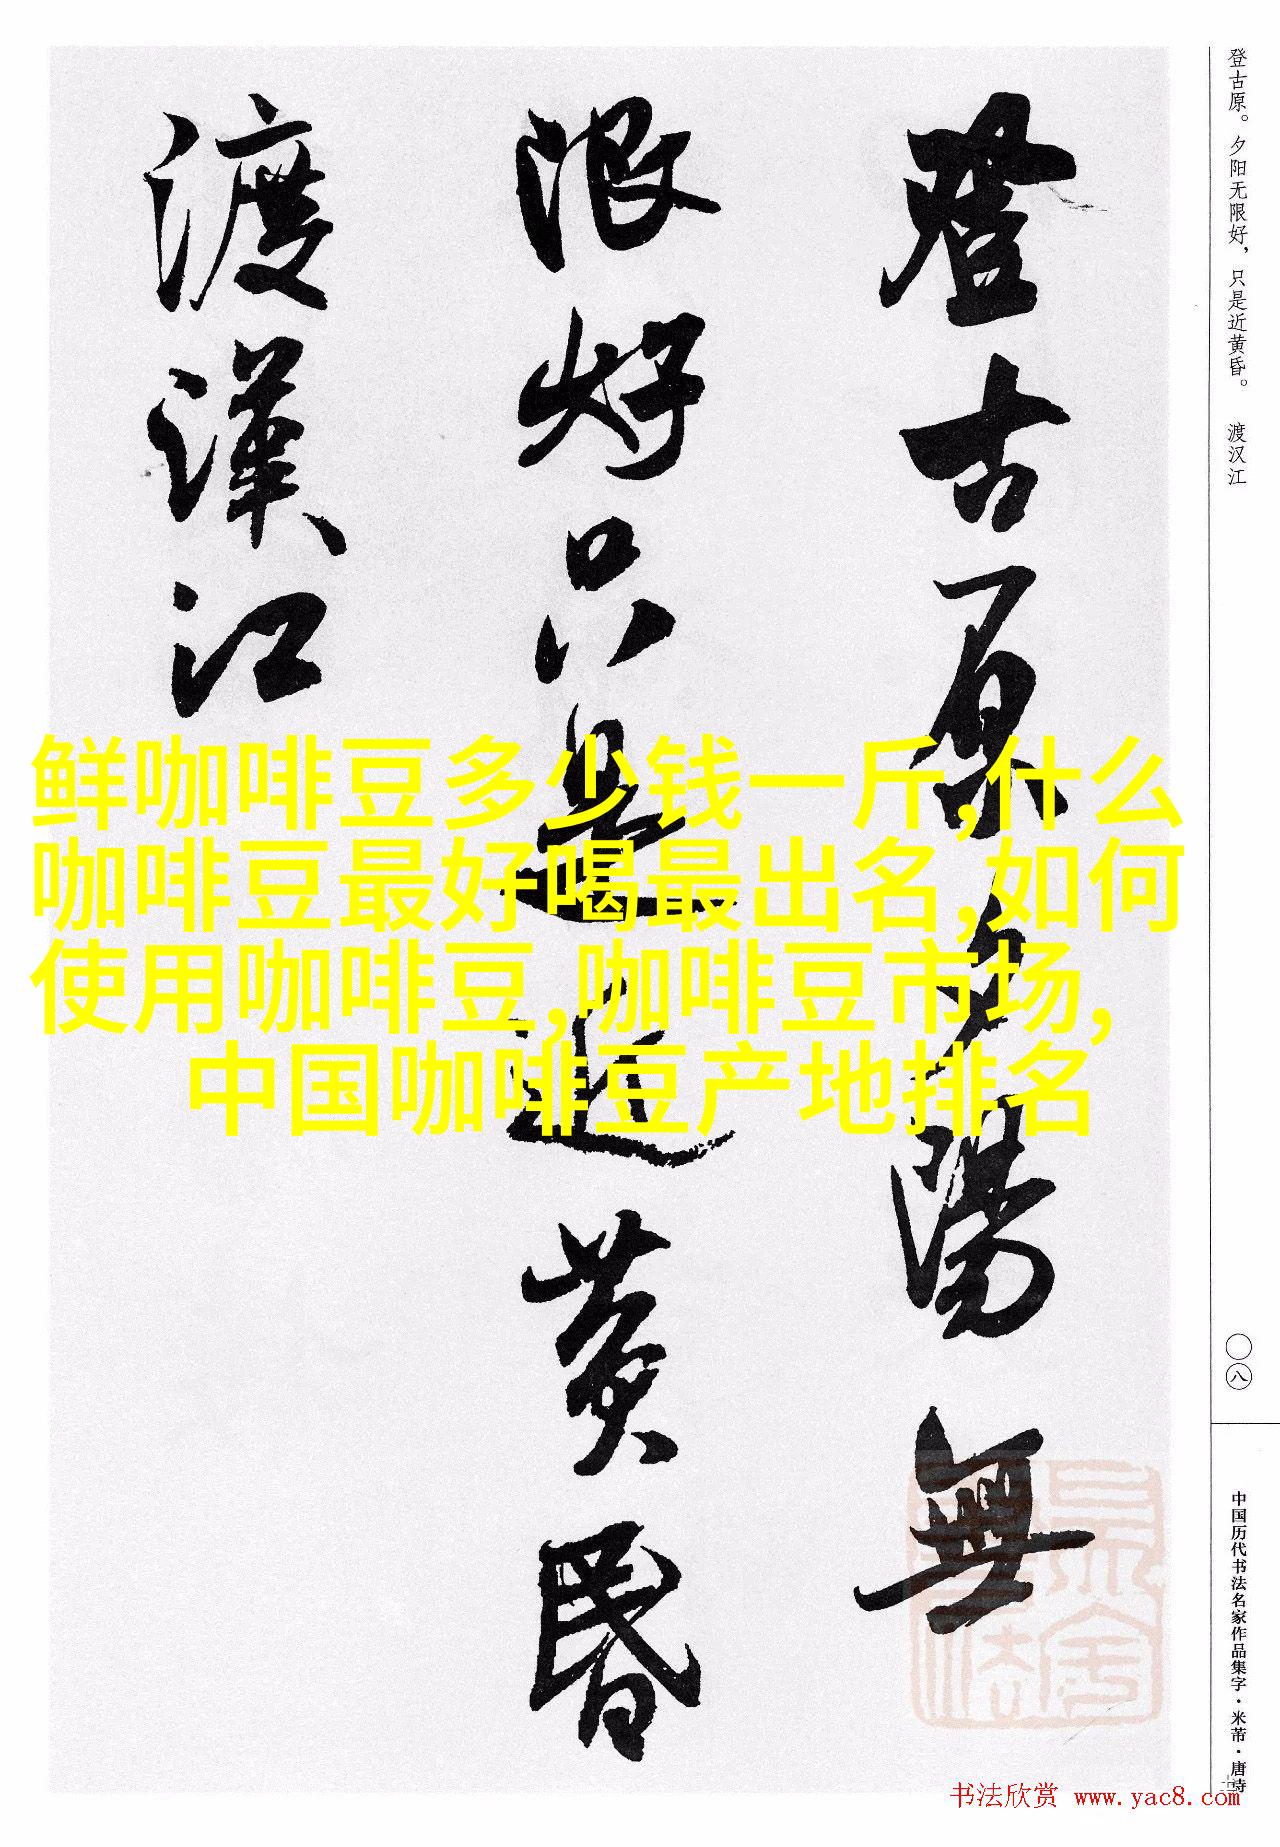 登古原夕陽無
限好只是近黄昏
渡漢江
登古原。夕阳无限好，只是近黄昏。 渡汉江
〇八
中国历代书法名家作品集字·米芾·唐诗
鲜咖啡豆多少钱一斤,什么
咖啡豆最好喝最出名,如何
使用咖啡豆,咖啡豆市场,
中国咖啡豆产地排名
书法欣赏 www.yac8.com